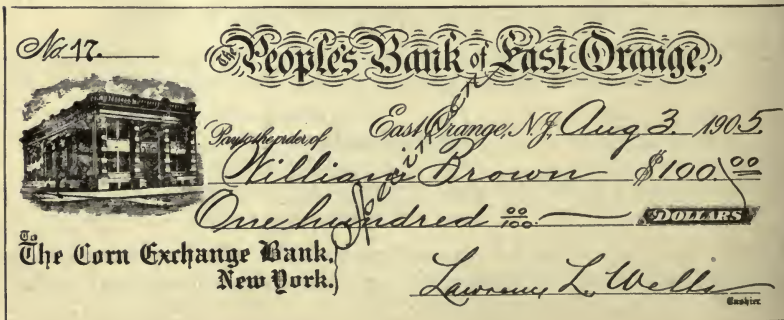 No. 17.
The People's Bank of East Orange,
East Orange, N.J. Aug 3. 1905.
Pay to the order of
William Brown $100.00
One hundred 00/100 DOLLARS
Specimen
To
The Corn Exchange Bank,
New York.
Lawrence L. Wells
Cashier